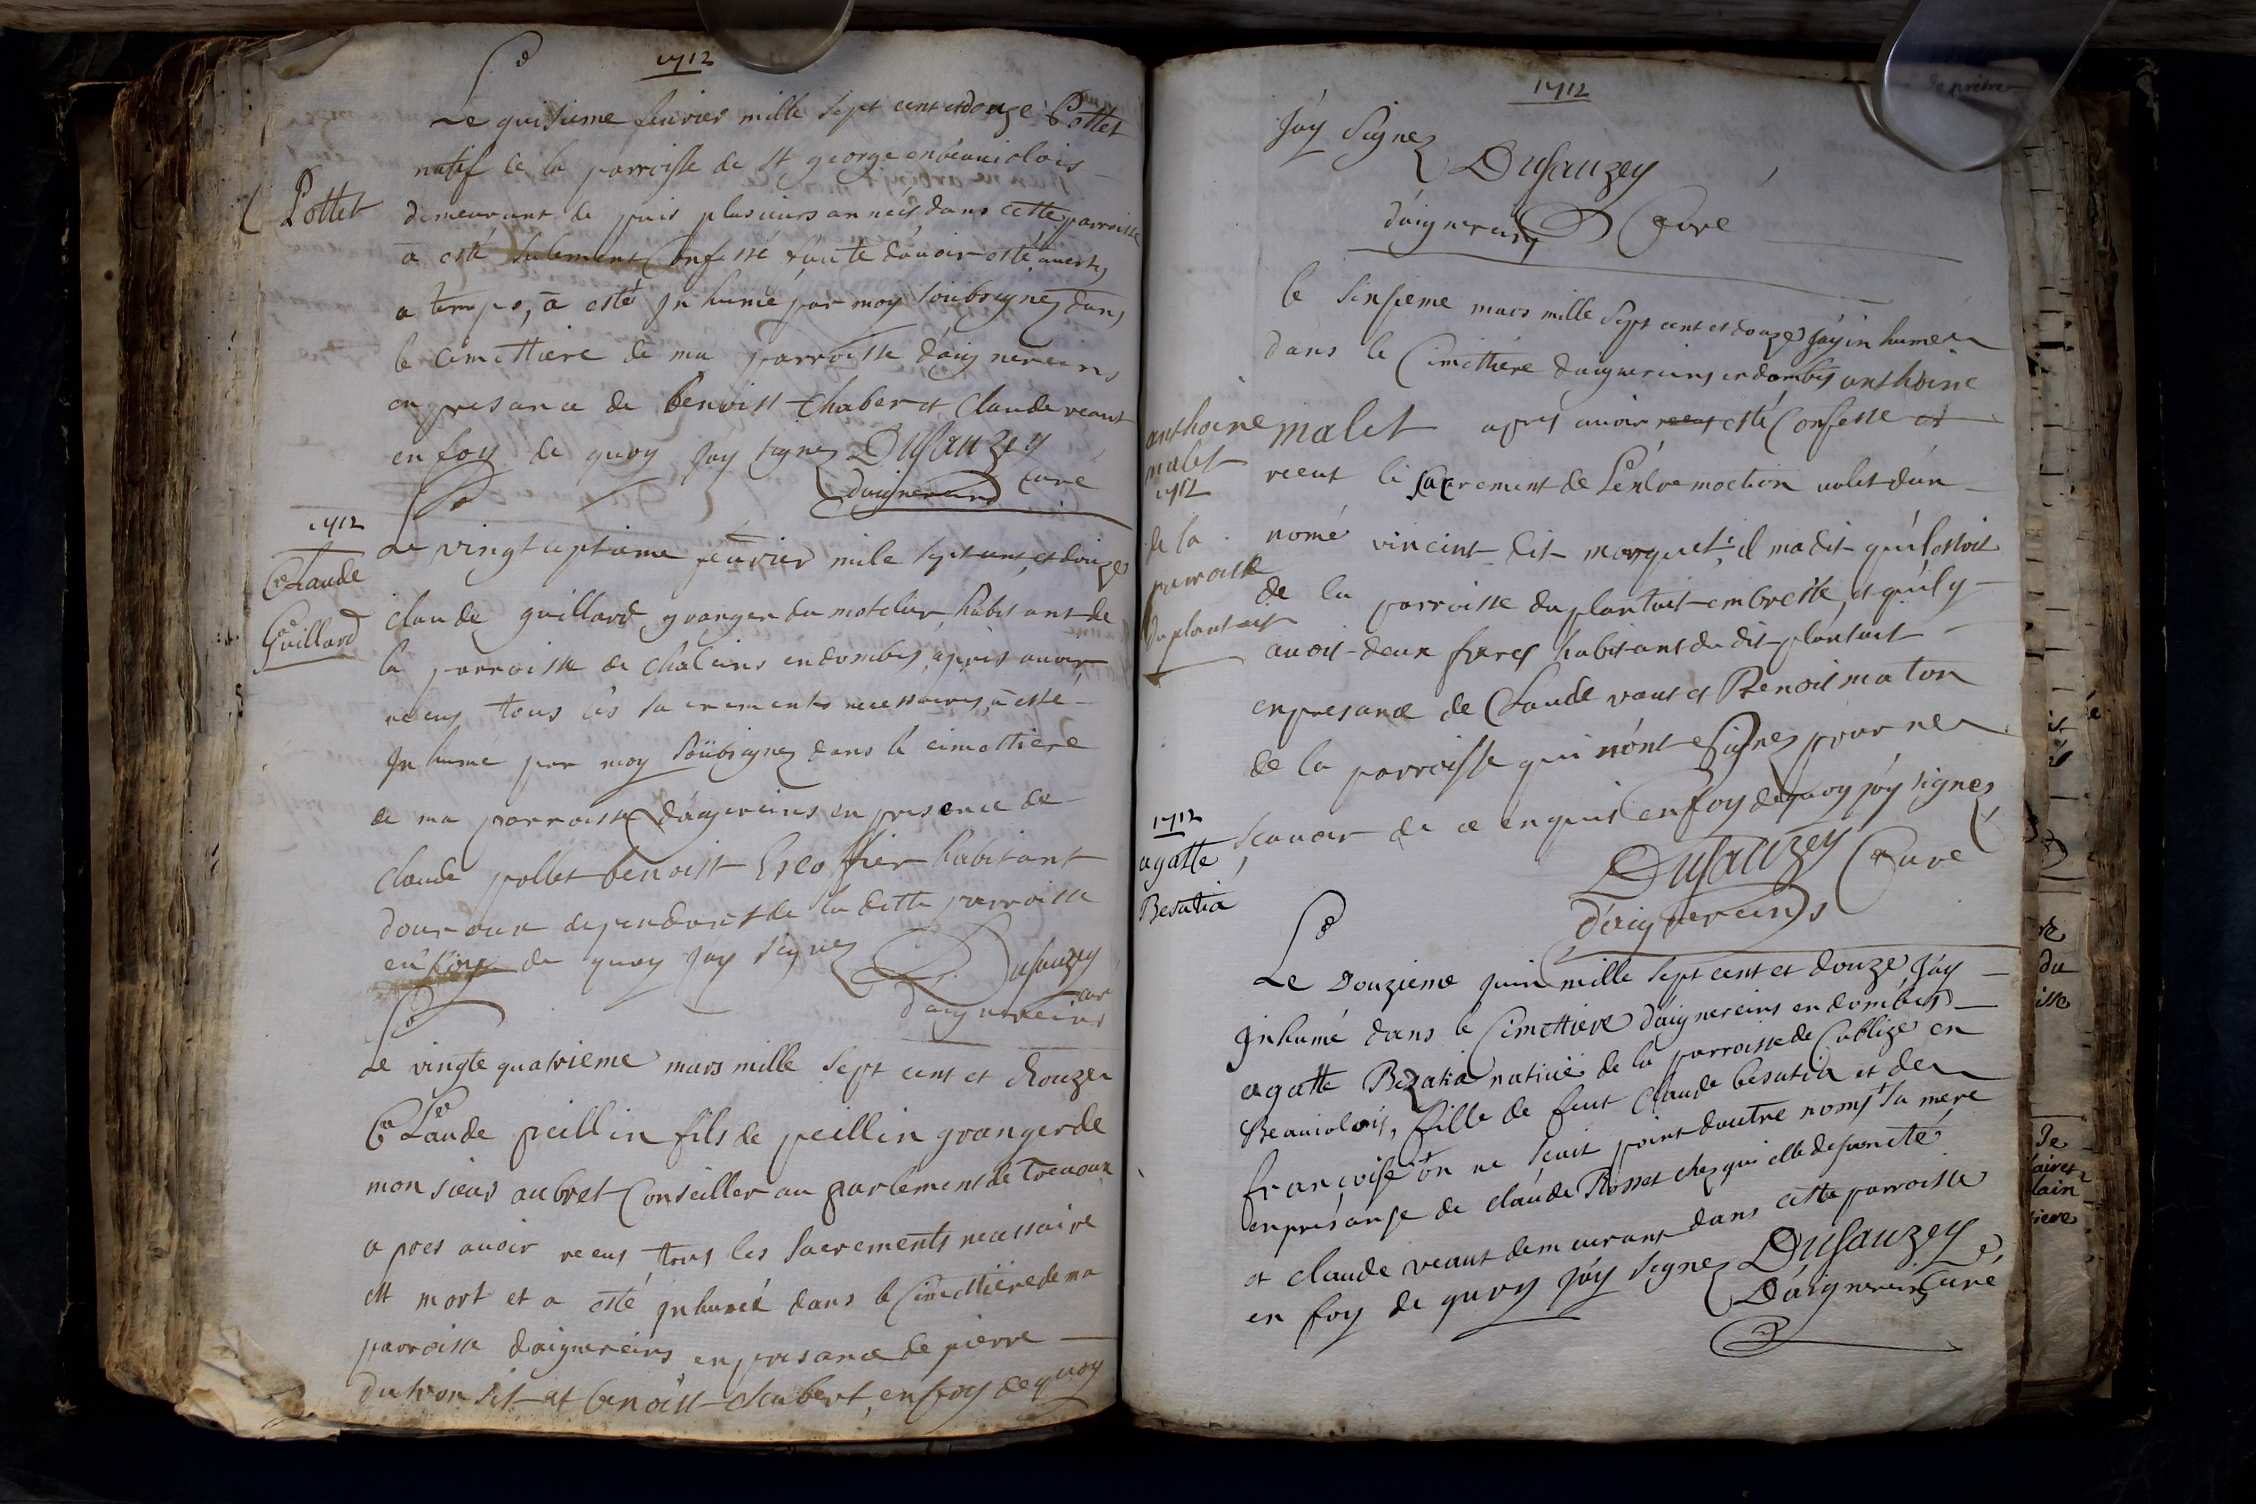 1712
Le quisieme feuvrier mille sept cent et douze Pottet
natif de la parroisse de st george en beauiolois
Pottet
demeurant de puis plusieurs anneis dans cette parroisse
a esté sulement Confessé faute dáuoir esté auerty
a temps, a esté Inhumé par moy soubsignez dans
le cimettiere de ma parroisse daignereins
en presance de benoist Chaber et Claude veaut
en foy de quoy Jay signez Dusauzey
Curé
daignereins
1712
Le vingt septieme feuvrier mile sept cent et douze
Claude
Guillard
claude guillard granger du motelier, habitant de
la parroisse de chaleins en dombes, apres auoir
receus tous les sacrements necessaires, a esté
Inhumé par moy soubsignez dans le cimettiere
de ma parroisse daignereins en presence de
claude pollet benoist Escoffier habitant
de la ditte parroisse
en foy de quoy Jay signez Dusauzey
cur
daignereins
Le vingte quatrieme mars mille sept cent et douze
Claude peillin fils de peillin granger de
monsieur aubret Conseiller au parlement de Treuoux
apres auoir receus tous les sacrements necessaire
est mort et a esté Inhumé dans le Cimettiere de ma
parroisse daignereins en presance de pierre
et benoist Chabert, en foy de quoy
1712
Jáy Signez
Dusauzey
dáignereins Curé
le sinsieme mars mille sept cent et douze Jáy inhumé
dans le Cimettiere daignereins en dombes anthoine
anthoine
malet
1712
de la
parroisse
du plantait
malet apres auoir receu esté Confesse et
receut le sacrement de Lextremoction valet dún
nomé vincint dit morguet; il ma dit quíl estoit
de la parroisse du plantait en bresse, et quíl y
auoit deux freres habitant du dit plantait
en presance de Claude veaut et Benoit maton
de la parroisse qui nónt Signez pour ne
scauoir de ce enquis en foy de quoy jáy signez
Dusauzey Curé
dáignereins
1712
agatte
Besatia
Le Douzieme juin mille sept cent et douze Jáy
Inhumé dans le Cimettiere dáignereins en dombes
agatte Bezatia natiue de la parroisse de Cublize en
Beauiolois, fille de feut Claude besatia et de
francoise on ne scait point dautre noms sa mere
en présance de claude Rosset chez qui elle desuncté
et claude veaut demeurant dans cette parroisse
en foy de quoy Jáy signez Dusauzey
Dáignereins Curé